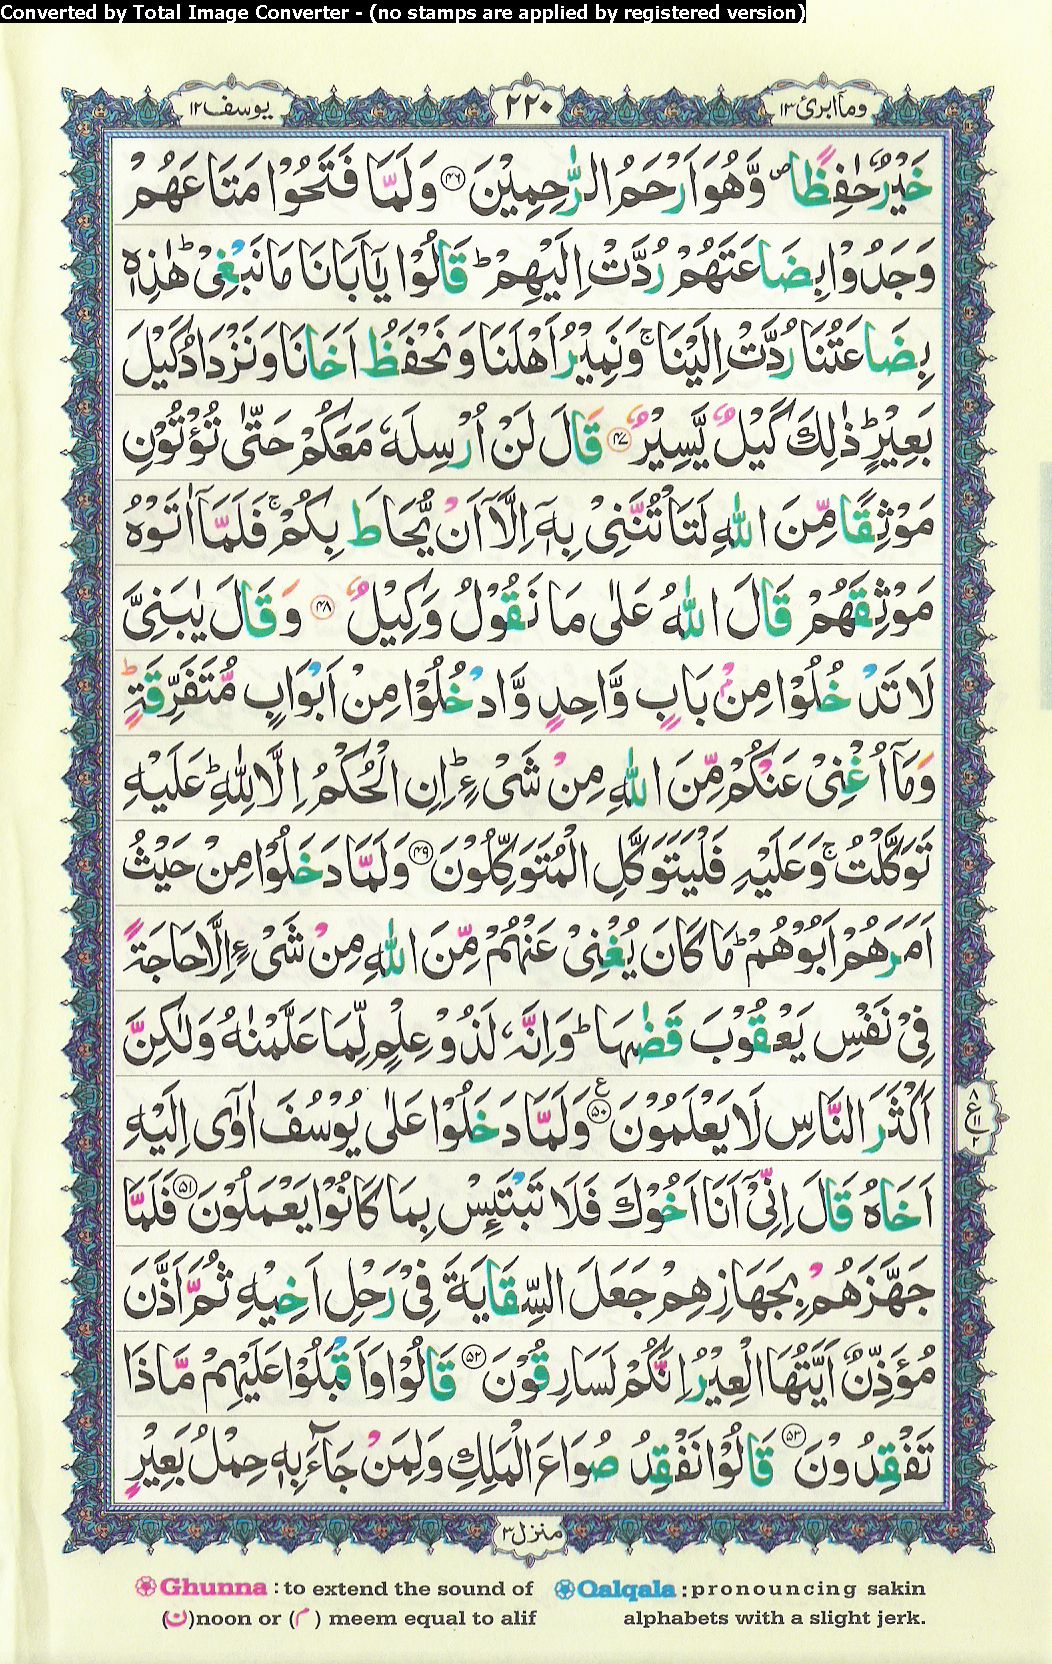 Converted by Total Image Converter - (no stamps are applied by registered version)
وما ابرئ ١٣
٢٢٠
يوسف ١٢
خَيْرٌ حٰفِظًا ۪ وَّهُوَ اَرْحَمُ الرّٰحِمِيْنَ ﴿۴۶﴾ وَلَمَّا فَتَحُوْا مَتَاعَهُمْ
وَجَدُوْا بِضَاعَتَهُمْ رُدَّتْ اِلَيْهِمْ ؕ قَالُوْا يٰۤاَبَانَا مَا نَبْغِيْ ؕ هٰذِهٖ
بِضَاعَتُنَا رُدَّتْ اِلَيْنَا ۚ وَنَمِيْرُ اَهْلَنَا وَنَحْفَظُ اَخَانَا وَنَزْدَادُ كَيْلَ
بَعِيْرٍ ؕ ذٰلِكَ كَيْلٌ يَّسِيْرٌ ﴿۴۷﴾ قَالَ لَنْ اُرْسِلَهٗ مَعَكُمْ حَتّٰى تُؤْتُوْنِ
مَوْثِقًا مِّنَ اللّٰهِ لَتَاْتُنَّنِيْ بِهٖۤ اِلَّاۤ اَنْ يُّحَاطَ بِكُمْ ۚ فَلَمَّاۤ اٰتَوْهُ
مَوْثِقَهُمْ قَالَ اللّٰهُ عَلٰى مَا نَقُوْلُ وَكِيْلٌ ﴿۴۸﴾ وَقَالَ يٰبَنِيَّ
لَا تَدْخُلُوْا مِنْۢ بَابٍ وَّاحِدٍ وَّادْخُلُوْا مِنْ اَبْوَابٍ مُّتَفَرِّقَةٍ ؕ
وَمَاۤ اُغْنِيْ عَنْكُمْ مِّنَ اللّٰهِ مِنْ شَيْءٍ ؕ اِنِ الْحُكْمُ اِلَّا لِلّٰهِ ؕ عَلَيْهِ
تَوَكَّلْتُ ۚ وَعَلَيْهِ فَلْيَتَوَكَّلِ الْمُتَوَكِّلُوْنَ ﴿۴۹﴾ وَلَمَّا دَخَلُوْا مِنْ حَيْثُ
اَمَرَهُمْ اَبُوْهُمْ ؕ مَا كَانَ يُغْنِيْ عَنْهُمْ مِّنَ اللّٰهِ مِنْ شَيْءٍ اِلَّا حَاجَةً
فِيْ نَفْسِ يَعْقُوْبَ قَضٰىهَا ؕ وَاِنَّهٗ لَذُوْ عِلْمٍ لِّمَا عَلَّمْنٰهُ وَلٰكِنَّ
اَكْثَرَ النَّاسِ لَا يَعْلَمُوْنَ ﴿۵۰﴾ ع وَلَمَّا دَخَلُوْا عَلٰى يُوْسُفَ اٰوٰۤى اِلَيْهِ
٨ ع ١١ ٢
اَخَاهُ قَالَ اِنِّيْۤ اَنَا اَخُوْكَ فَلَا تَبْتَئِسْ بِمَا كَانُوْا يَعْمَلُوْنَ ﴿۵۱﴾ فَلَمَّا
جَهَّزَهُمْ بِجَهَازِهِمْ جَعَلَ السِّقَايَةَ فِيْ رَحْلِ اَخِيْهِ ثُمَّ اَذَّنَ
مُؤَذِّنٌ اَيَّتُهَا الْعِيْرُ اِنَّكُمْ لَسَارِقُوْنَ ﴿۵۲﴾ قَالُوْا وَاَقْبَلُوْا عَلَيْهِمْ مَّاذَا
تَفْقِدُوْنَ ﴿۵۳﴾ قَالُوْا نَفْقِدُ صُوَاعَ الْمَلِكِ وَلِمَنْ جَآءَ بِهٖ حِمْلُ بَعِيْرٍ
منزل ٣
Ghunna : to extend the sound of
(ن) noon or (م) meem equal to alif
Qalqala : pronouncing sakin
alphabets with a slight jerk.